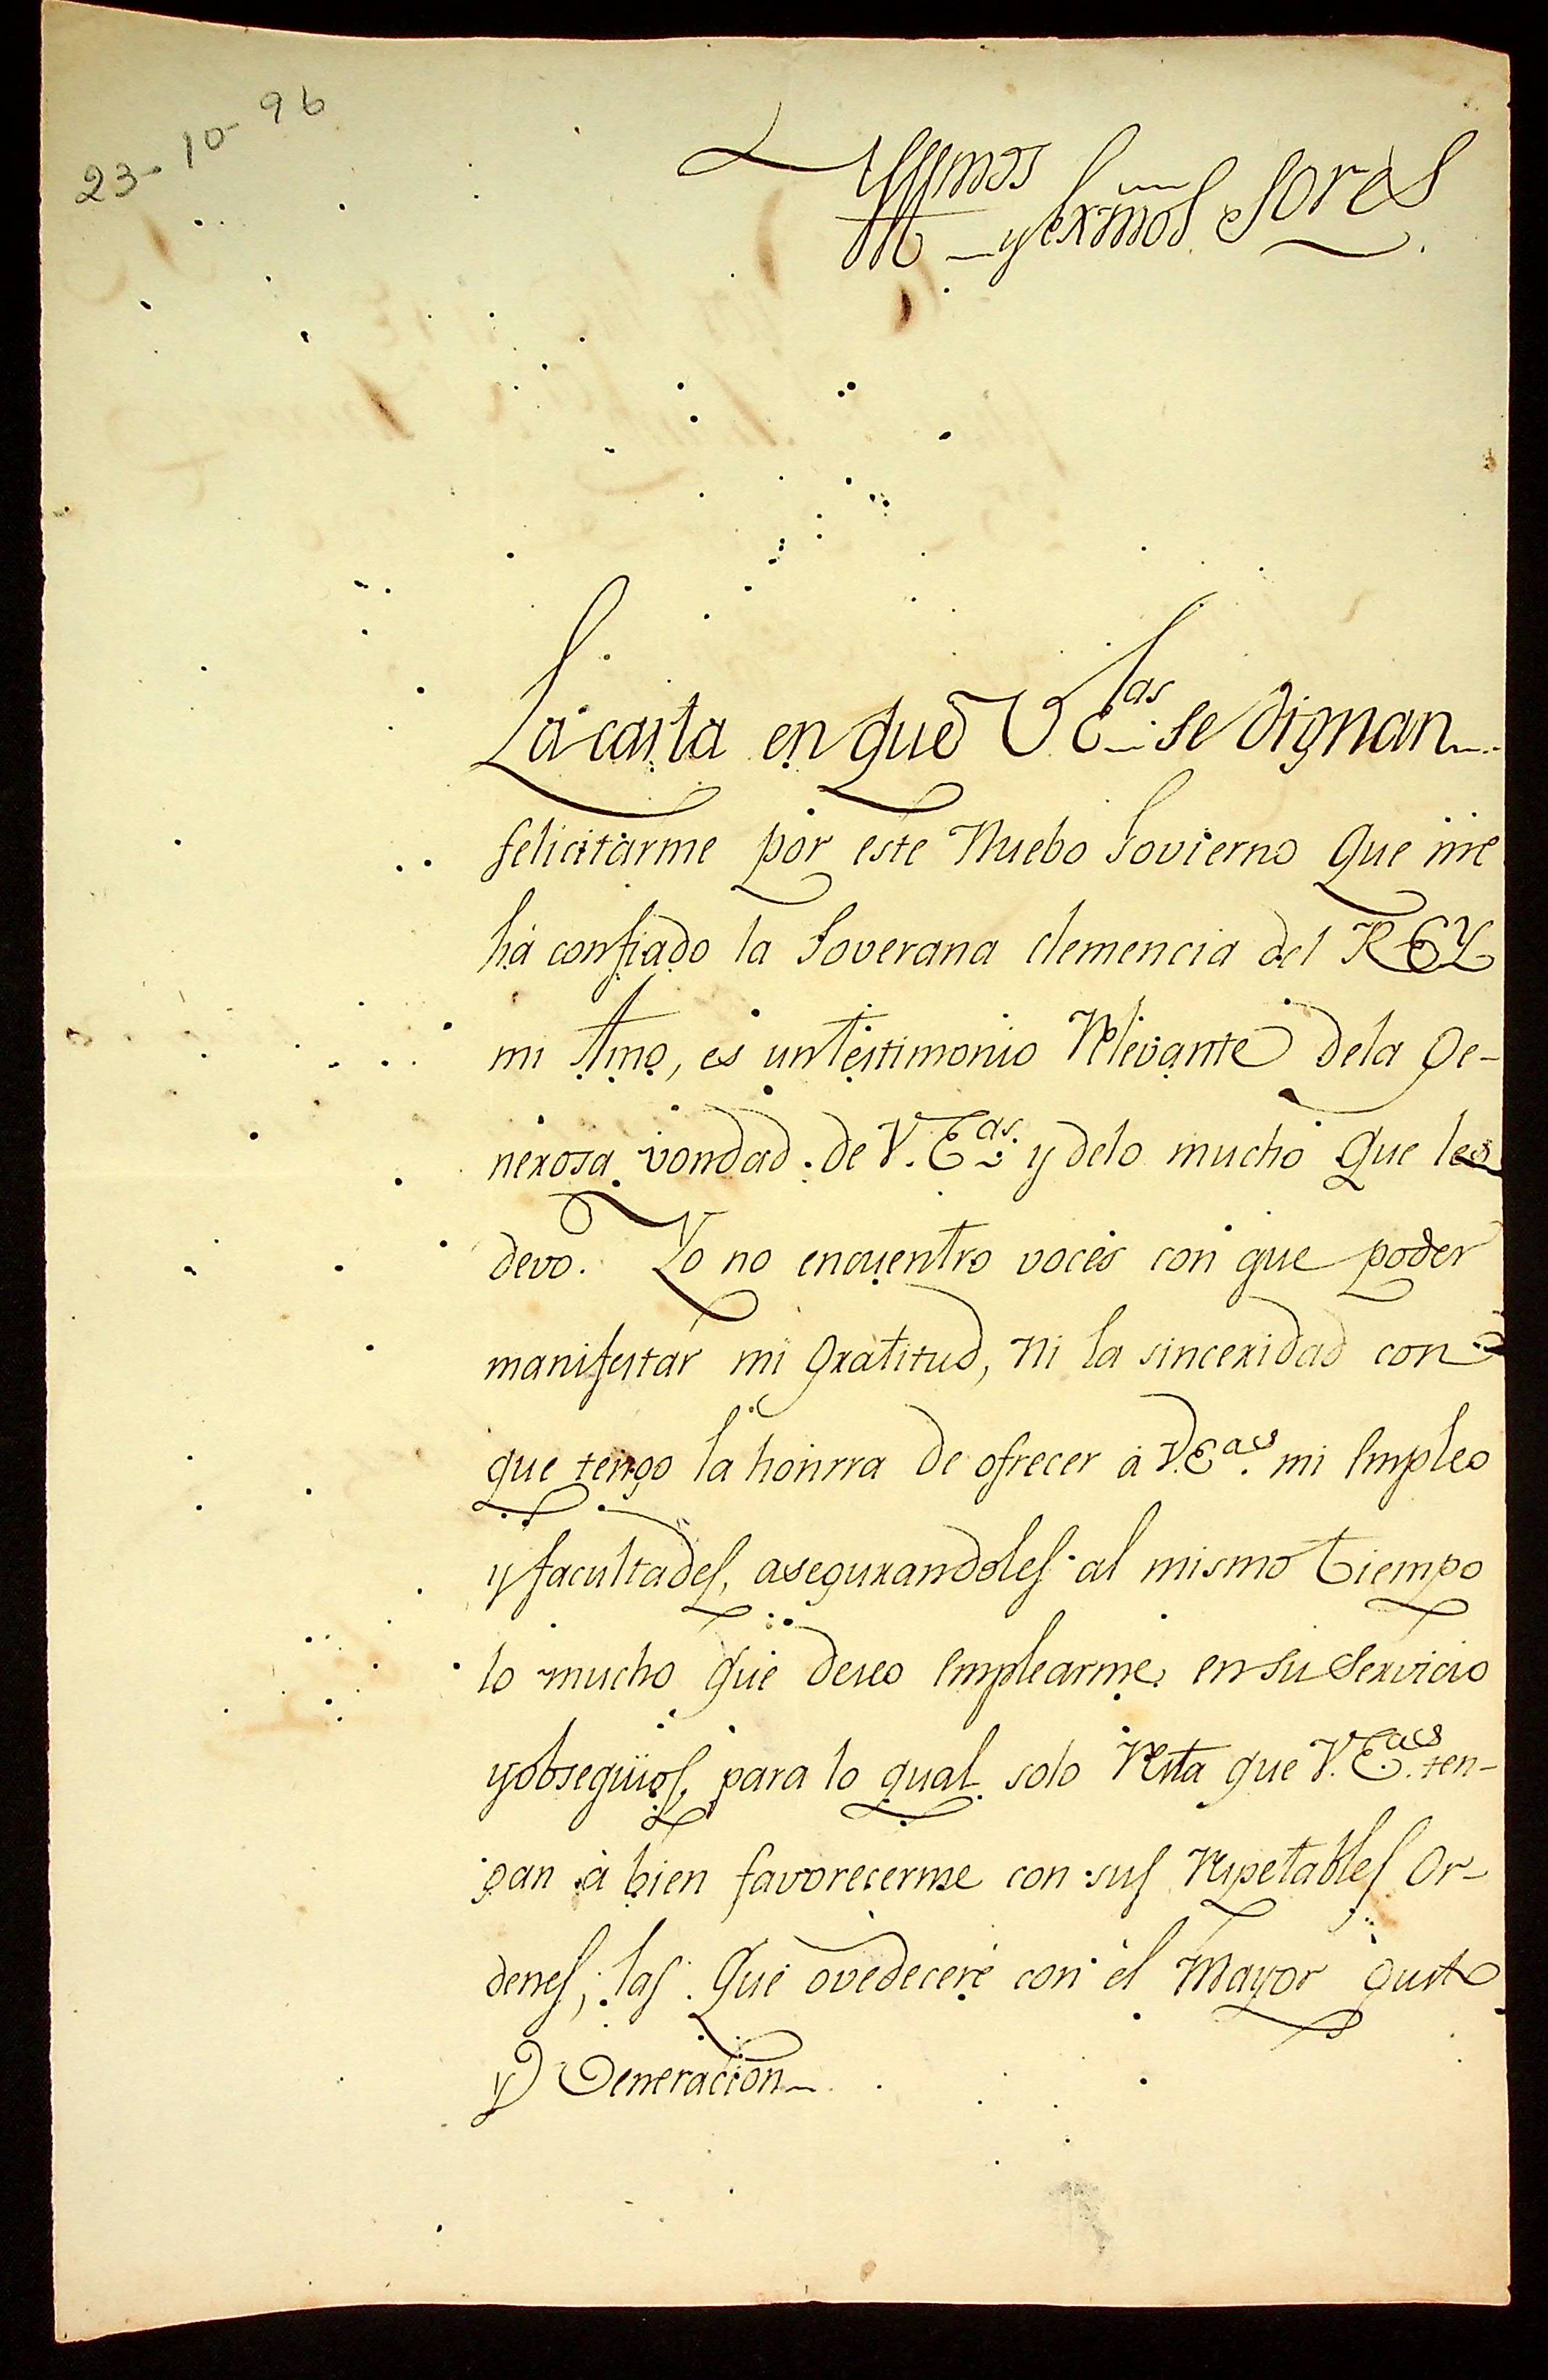 23-10-96
Yllmos
y Exmos Sores.
La carta en que V Eas se dignan
felicitarme por este Nuebo Govierno que me
há confiado la Soverana clemencia del REY
mi Amo, es un testimonio Relevante de la Ge-
nerosa vondad de V. Eas. y de lo mucho que les
devo. Yo no encuentro voces con que poder
manifestar mi Gratitud, ni la sinceridad con
que tengo la honrra de ofrecer á V.Eas. mi Empleo
y facultades, asegurandoles al mismo tiempo
lo mucho que deseo Emplearme en su Servicio
y obsequios, para lo qual solo Resta que V. Eas. ten-
gan á bien favorecerme con sus Respetables Or-
denes, las que ovedeceré con el Mayor gusto
y Veneracion